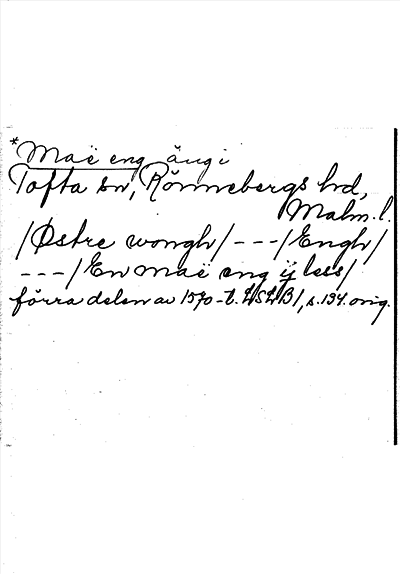 *Maë eng äng i
Tofta sn, Rönnebergs hd,
Malm. l.
/Østre wongh/ ---/Engh/
---/En maë eng ij less/
förra delen av 1570-t. LSLB1, s. 134. orig.